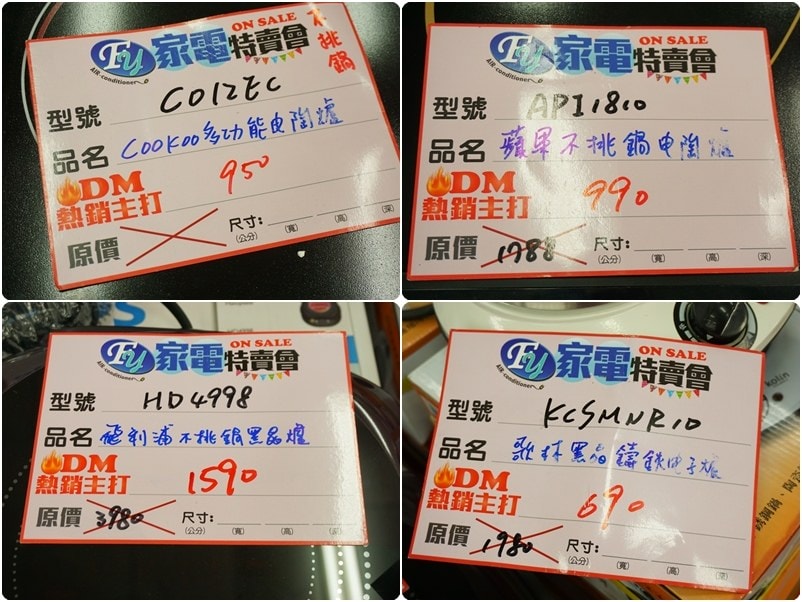 Fy 家電特賣會 ON SALE
AIR-conditioner
不挑鍋
型號 CO12EC
品名 COOKOO多功能电陶爐
DM 950
熱銷主打
原價 尺寸:
(公分) (寬) (高) (深)
Fy 家電特賣會 ON SALE
AIR-conditioner
型號 API1810
品名 蘋果不挑鍋电陶爐
DM 990
熱銷主打
原價 1788 尺寸:
(公分) (寬) (高) (深)
Fy 家電特賣會 ON SALE
AIR-conditioner
型號 HD4998
品名 飛利浦不挑鍋黑晶爐
DM 1590
熱銷主打
原價 3980 尺寸:
(公分) (寬) (高) (深)
Fy 家電特賣會 ON SALE
AIR-conditioner
型號 KCSMNR10
品名 歌林黑晶鑄鉄电子爐
DM 690
熱銷主打
原價 1980 尺寸:
(公分) (寬) (高) (深)
kolin